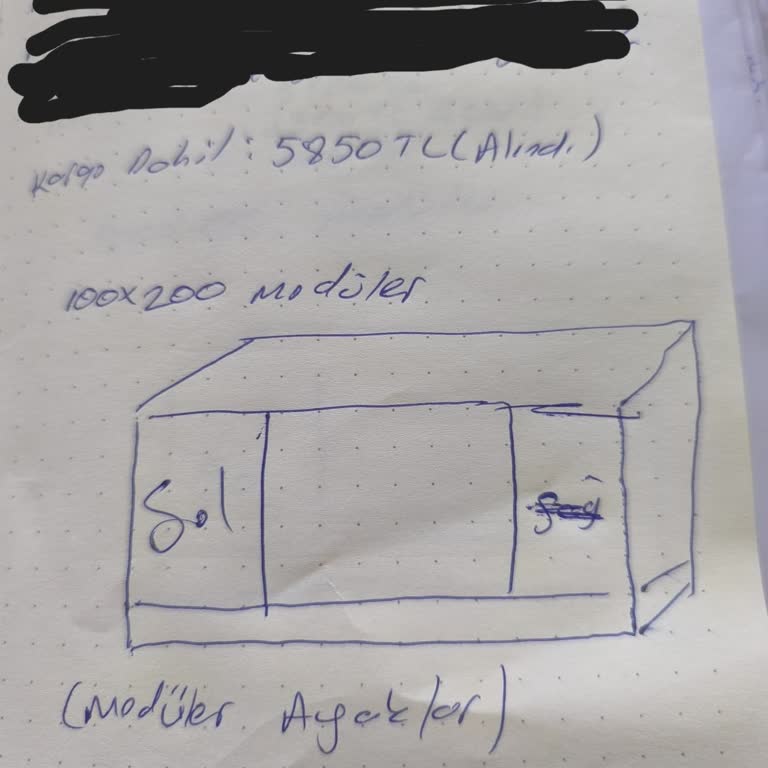 Kargo Dahil : 5850 TL (Alındı)
100x200 Modüler
Sol
(Modüler Ayaklar)